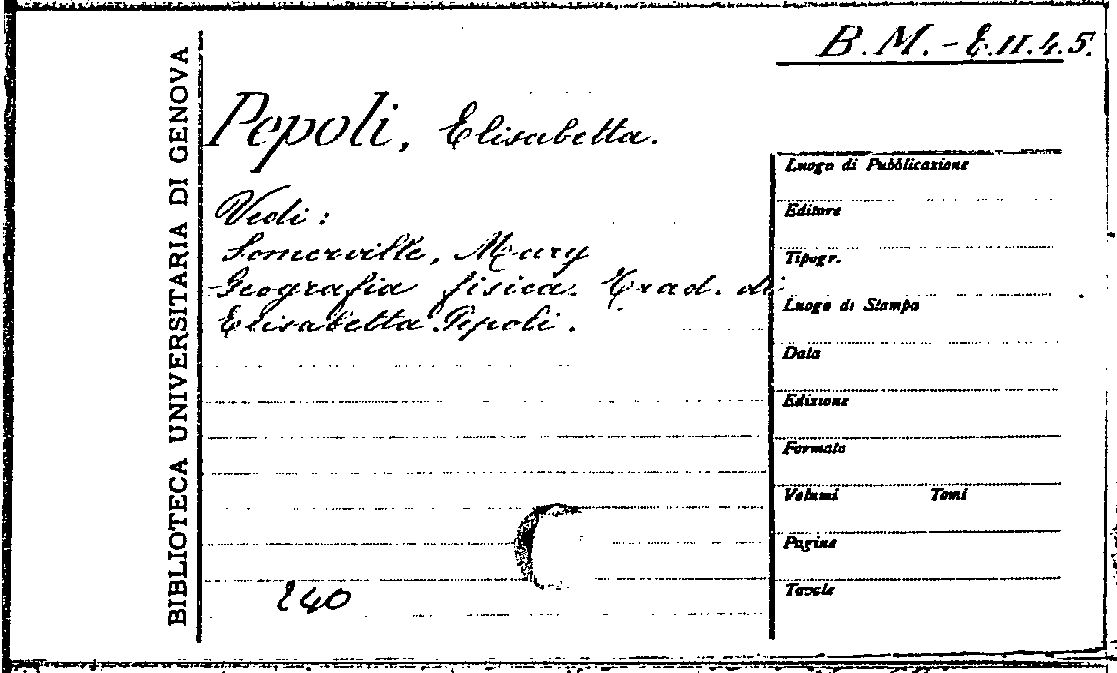 B.M.-E.II.4.5.
BIBLIOTECA UNIVERSITARIA DI GENOVA
Pepoli, Elisabetta.
Vedi:
Somerville, Mary
Geografia fisica. Trad. di
Elisabetta Pepoli.
240
Luogo di Pubblicazione
Editore
Tipogr.
Luogo di Stampa
Data
Edizione
Formato
Volumi Tomi
Pagine
Tavole